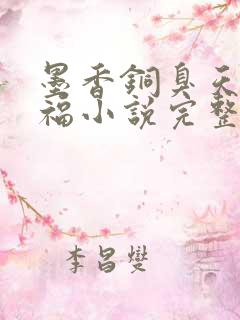 墨香銅臭天
福小說完整
李昌燮